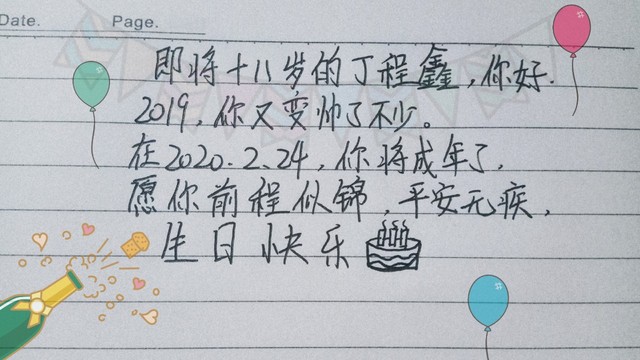 Date. Page.
即将十八岁的丁程鑫,你好.
2019,你又变帅了不少。
在2020.2.24,你将成年了,
愿你前程似锦,平安无疾,
生日快乐